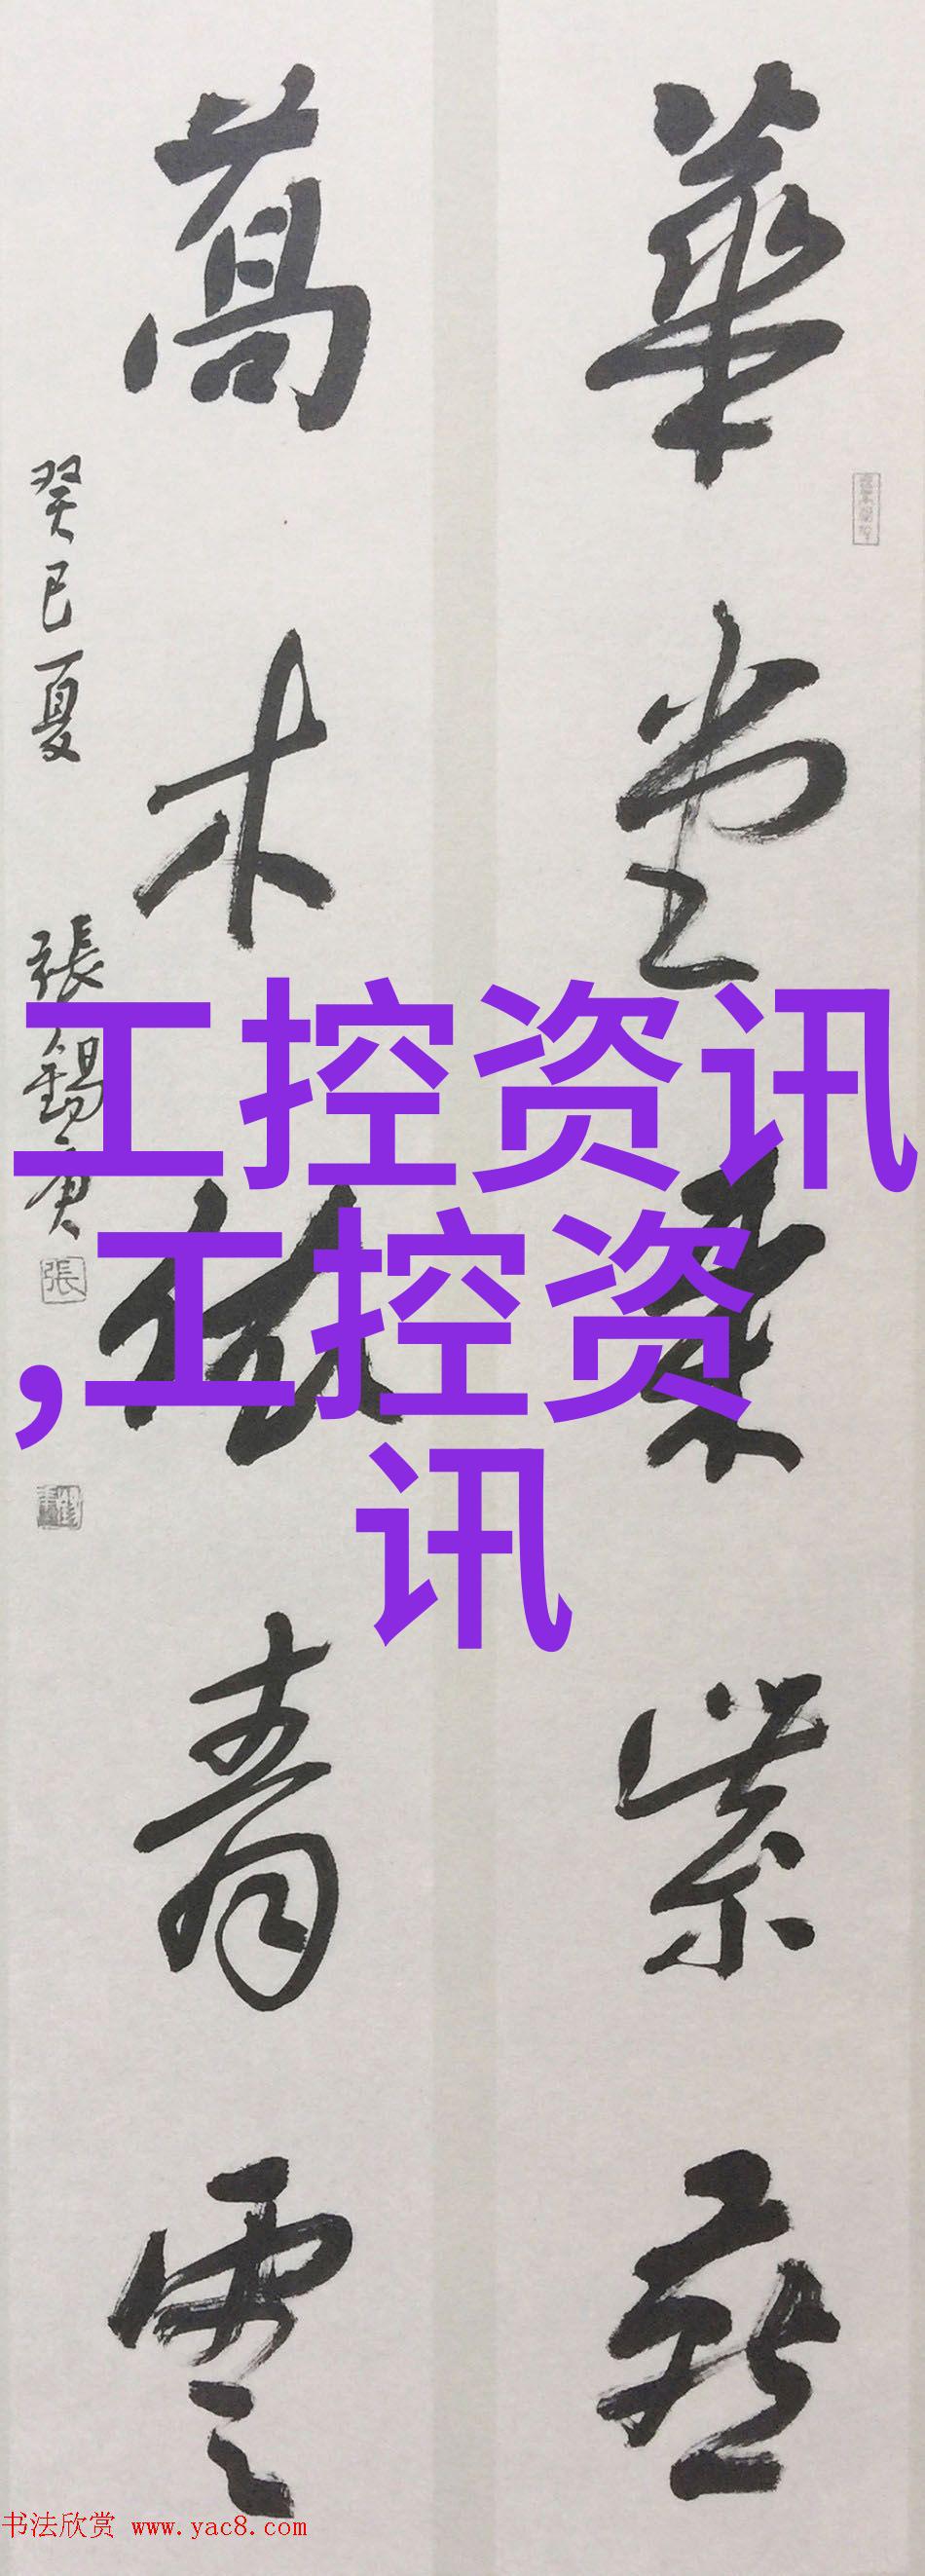 華堂來紫燕
萬木青雲
癸巳夏 張錫庚
張
工控资讯
,工控资
讯
书法欣赏 www.yac8.com